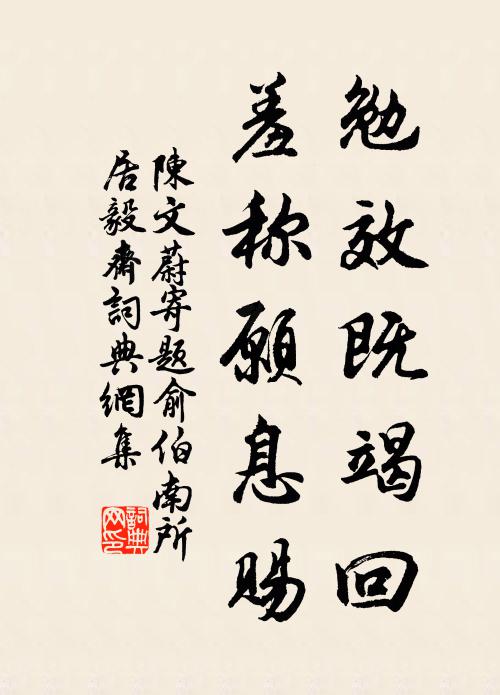 勉效既竭回
羞称願息賜
陳文蔚寄題俞伯南所
居毅齋詞典網集
詞典網印